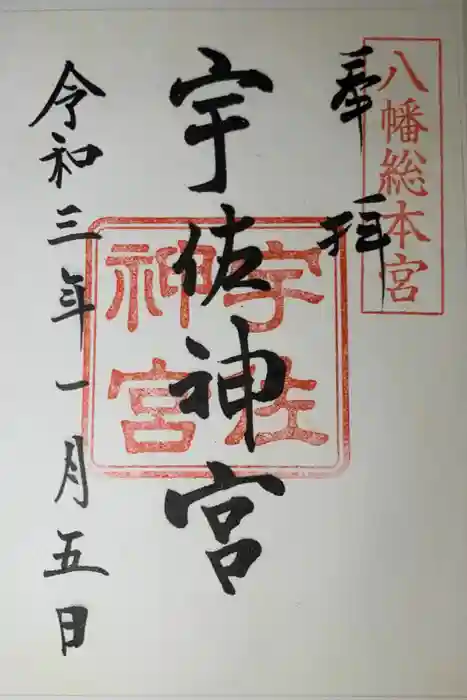 八幡総本宮
奉拝
宇佐神宮
宇佐神宮
令和三年一月五日